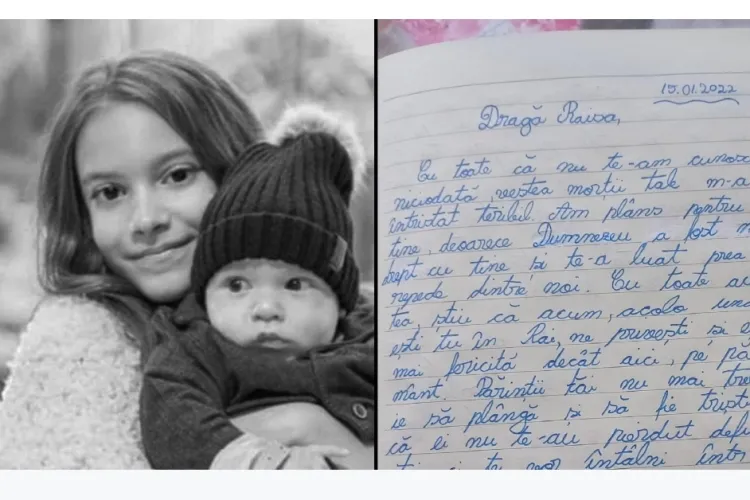 15.01.2022
Dragă Raisa,
Cu toate că nu te-am cunos
niciodată, vestea morții tale m-a
întristat teribil. Am plâns pentru
tine, deoarece Dumnezeu a fost n
drept cu tine și te-a luat prea
repede dintre noi. Cu toate a
tea, știu că acum, acolo und
ești tu în Rai, ne privești și e
mai fericită decât aici, pe pă
mânt. Părinții tăi nu mai tre
ie să plângă și să fie triști
că ei nu te-au pierdut defi
te vor întâlni într